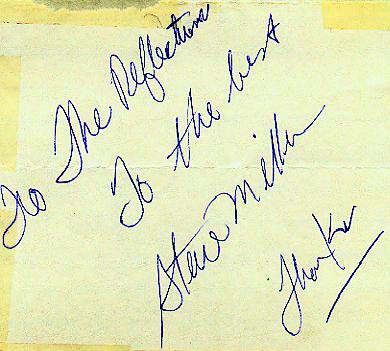 To The Reflections
To the best
Steve Miller
Thanks